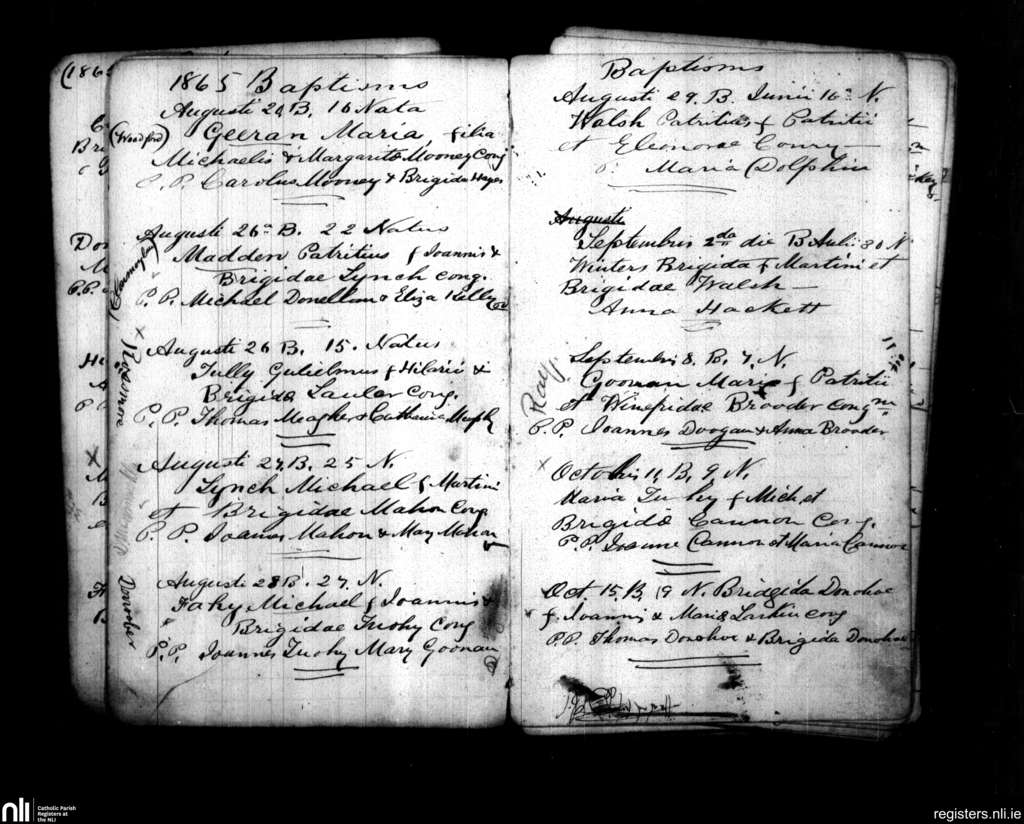 1865 Baptisms
Augusti 20, B. 16 Nata
(Woodford)
Geeran Maria, filia
Michaelis & Margarita Mooney Cong
P. P. Carolus Mooney & Brigida Hayes
Augusti 26 B. 22 Natus
Madden Patritius f Joannis &
Brigidae Lynch Cong.
P. P. Michael Donellan & Eliza Kelly
x Augusti 26 B. 15. Natus
Rosmore
Tully Gulielmus f Hilarii &
Brigida Lawler Cong.
P. P. Thomas Meagher & Catharine Murphy
Augusti 27, B. 25 N.
Lynch Michael f Martini
et Brigidae Mahon Cong.
P. P. Joannes Mahon & Mary Mahon
Augusti 28 B. 27. N.
Fahy Michael f Joannis &
Brigidae Tuohy Cong
P. P. Joannes Tuohy Mary Goonan
Baptisms
Augusti 29. B. Junii 16 N.
Walsh Patritius f Patritii
et Eleonorae Conry
Maria Dolphin
Augusti
Septembris 2da die B Julii 30 N
Winters Brigida f Martini et
Brigidae Walsh
Anna Hackett
Septembris 8. B. 7. N.
Goonan Maria f Patritii
et Winefridae Broder cong
P. P. Joannes Doogan & Anna Broder
x Octobris 11, B, 9, N.
Maria Tuohy f Mich et
Brigidae Cannon Cong.
P. P. Joanne Cannon et Maria Cannon
Oct. 15. B. 19 N. Bridgida Donohoe
f. Joannis & Maria Larkin Cong
P.P. Thomas Donohoe & Brigida Donohoe
nli
Catholic Parish
Registers at
the NLI
registers.nli.ie